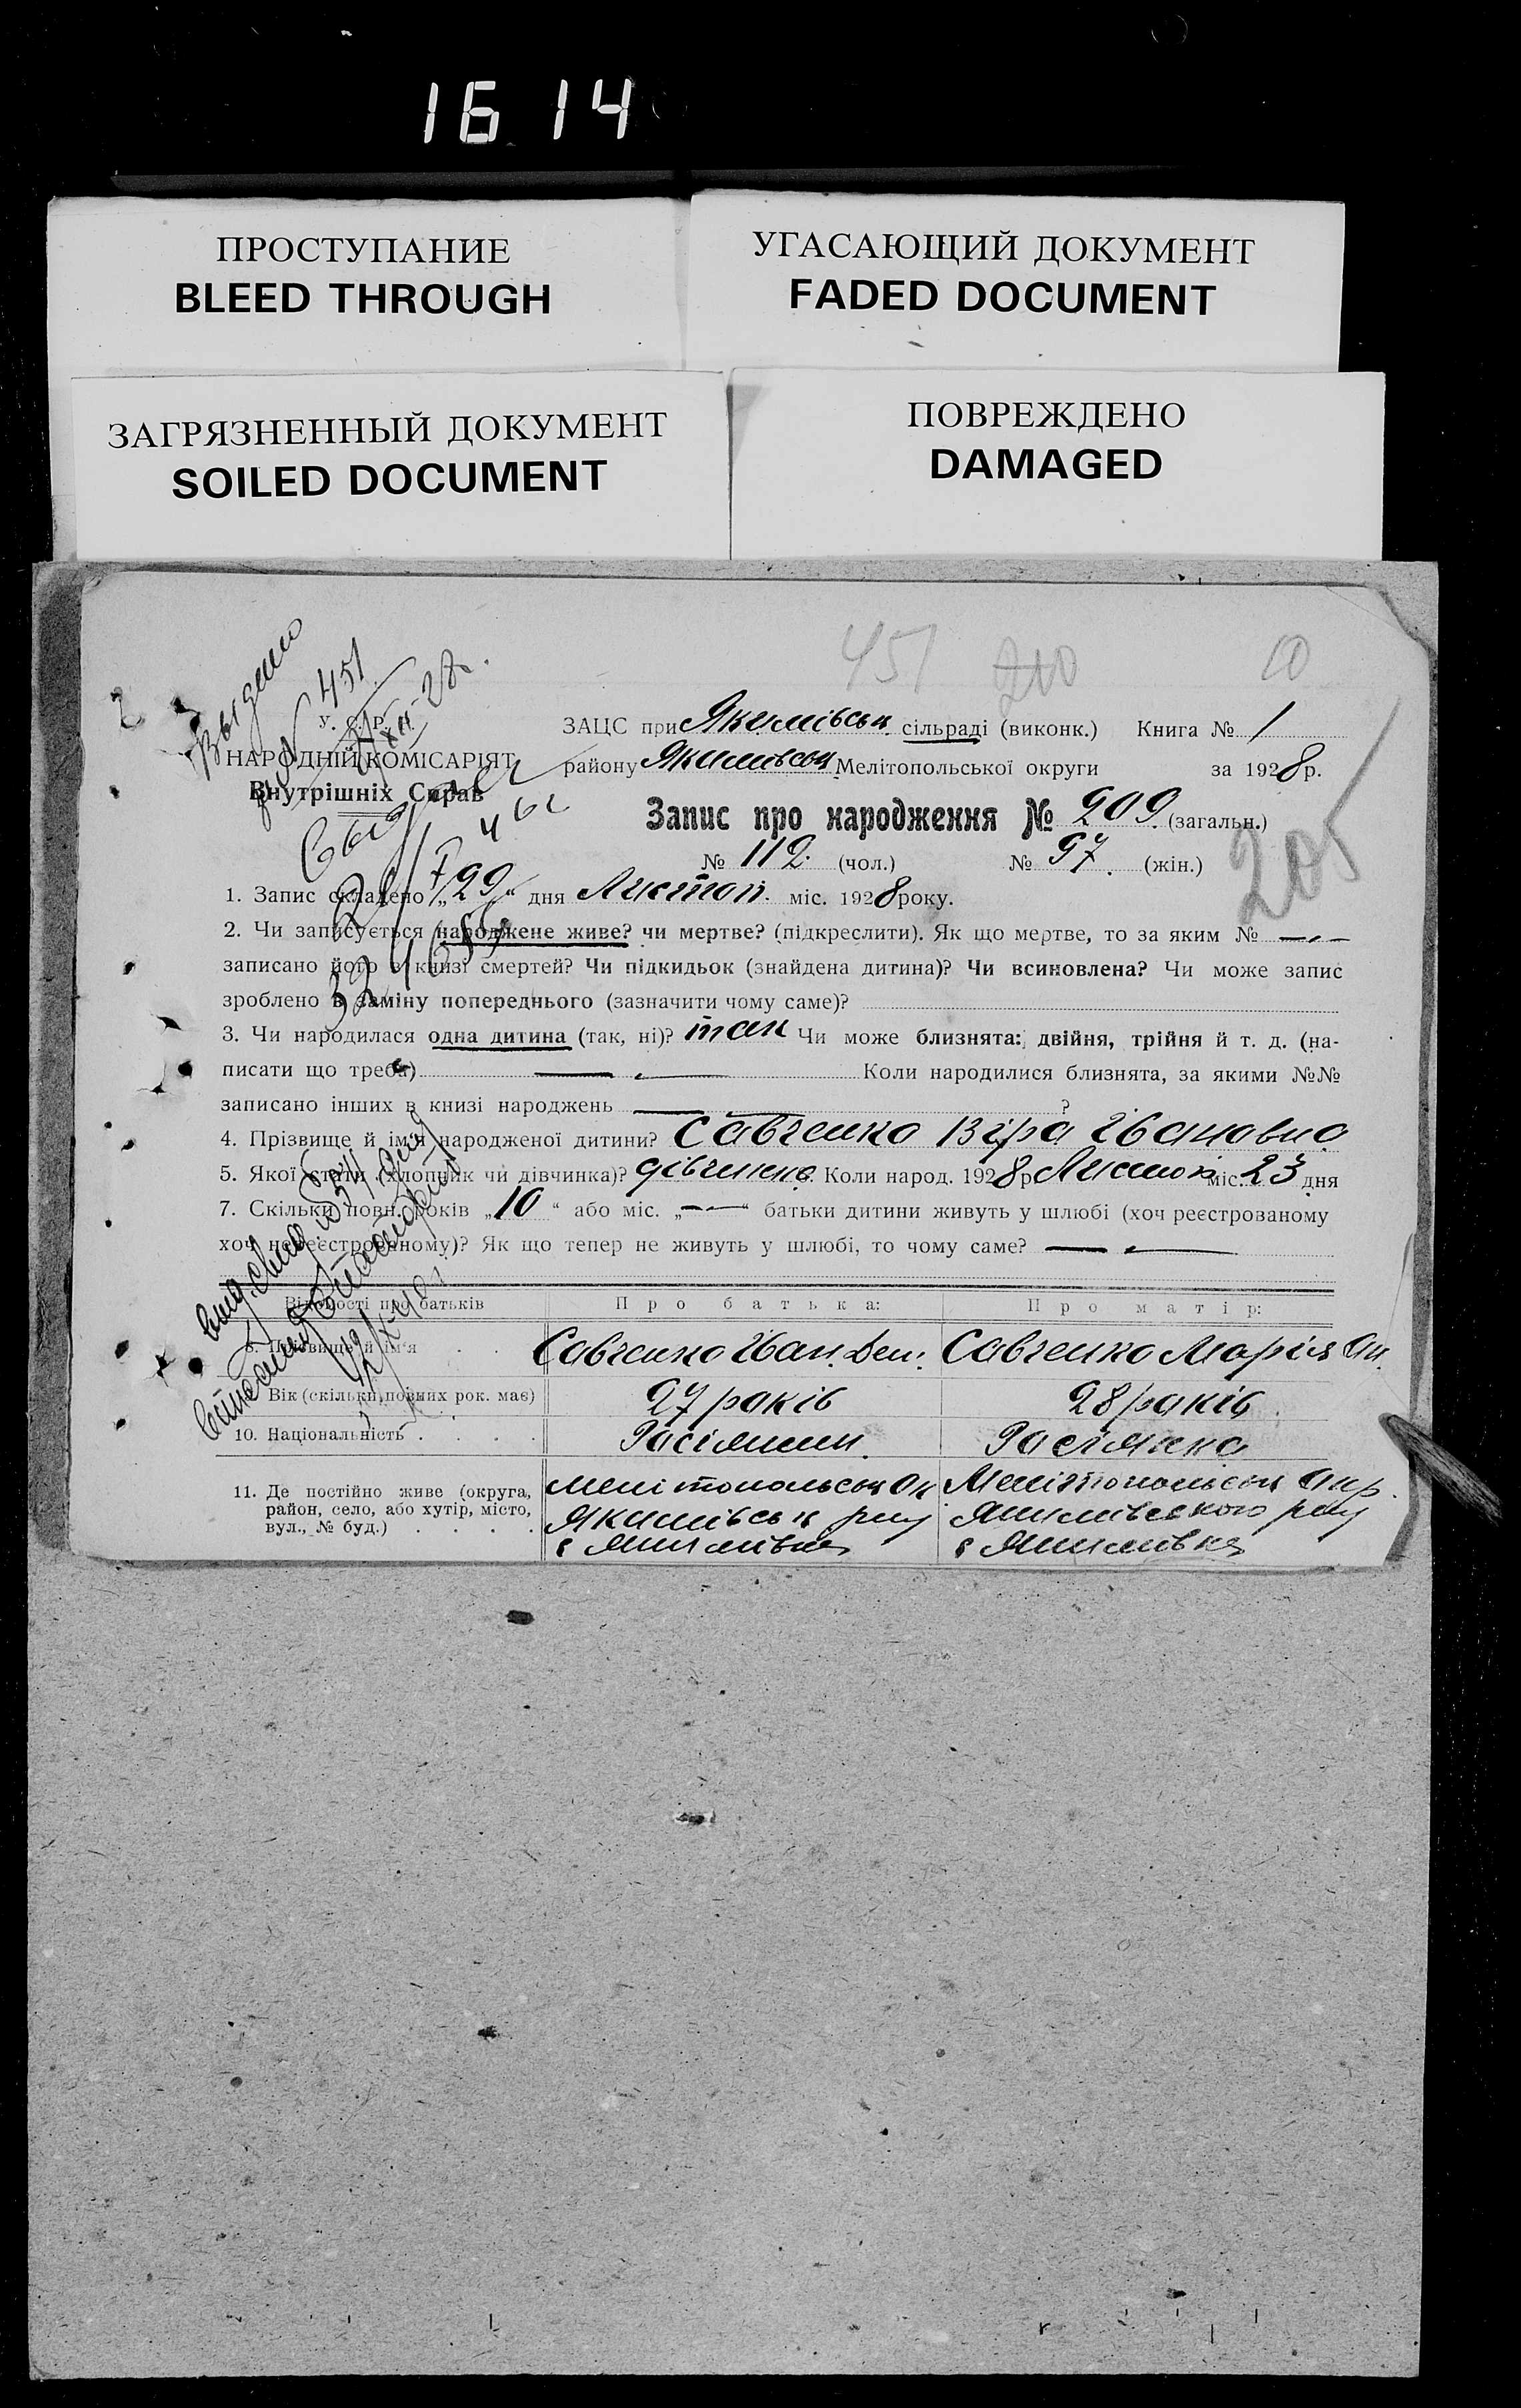 16 14
ПРОСТУПАНИЕ
BLEED THROUGH
УГАСАЮЩИЙ ДОКУМЕНТ
FADED DOCUMENT
ЗАГРЯЗНЕННЫЙ ДОКУМЕНТ
SOILED DOCUMENT
ПОВРЕЖДЕНО
DAMAGED
451 210 10
Выдано
451
У. С. Р. Р.
НАРОДНІЙ КОМІСАРІЯТ
Внутрішніх Справ
ЗАЦС при Якимівськ сільраді (виконк.) Книга № 1
району Якимівськ Мелітопольської округи за 1928 р.
Запис про народження № 209 (загальн.)
№ 112 (чол.) № 97 (жін.)
205
1. Запис складено „29“ дня Листоп. міс. 1928 року.
2. Чи записується народжене живе? чи мертве? (підкреслити). Як що мертве, то за яким №
записано його в книзі смертей? Чи підкидьок (знайдена дитина)? Чи всиновлена? Чи може запис
зроблено в заміну попереднього (зазначити чому саме)?
3. Чи народилася одна дитина (так, ні)? так Чи може близнята: двійня, трійня й т. д. (на-
писати що треба) Коли народилися близнята, за якими №№
записано інших в книзі народжень ?
4. Прізвище й ім'я народженої дитини? Савченко Віра Івановна
5. Якої стати (хлопчик чи дівчинка)? дівчинка. Коли народ. 1928 р Листоп міс. 23 дня
7. Скільки повн. років „10“ або міс. „—“ батьки дитини живуть у шлюбі (хоч реєстрованому
хоч нереєстрованому)? Як що тепер не живуть у шлюбі, то чому саме?
Відомості про батьків Про батька: Про матір:
8. Прізвище й ім'я Савченко Іван Дем. Савченко Марія Ан.
Вік (скільки повних рок. має) 27 років 28 років
10. Національність Росіянин Росіянка
11. Де постійно живе (округа, Мелітопольськ Ок Мелітопольськ Окр.
район, село, або хутір, місто, Якимівськ р-ну Якимівського р-ну
вул., № буд.) с Якимівка с Якимівка